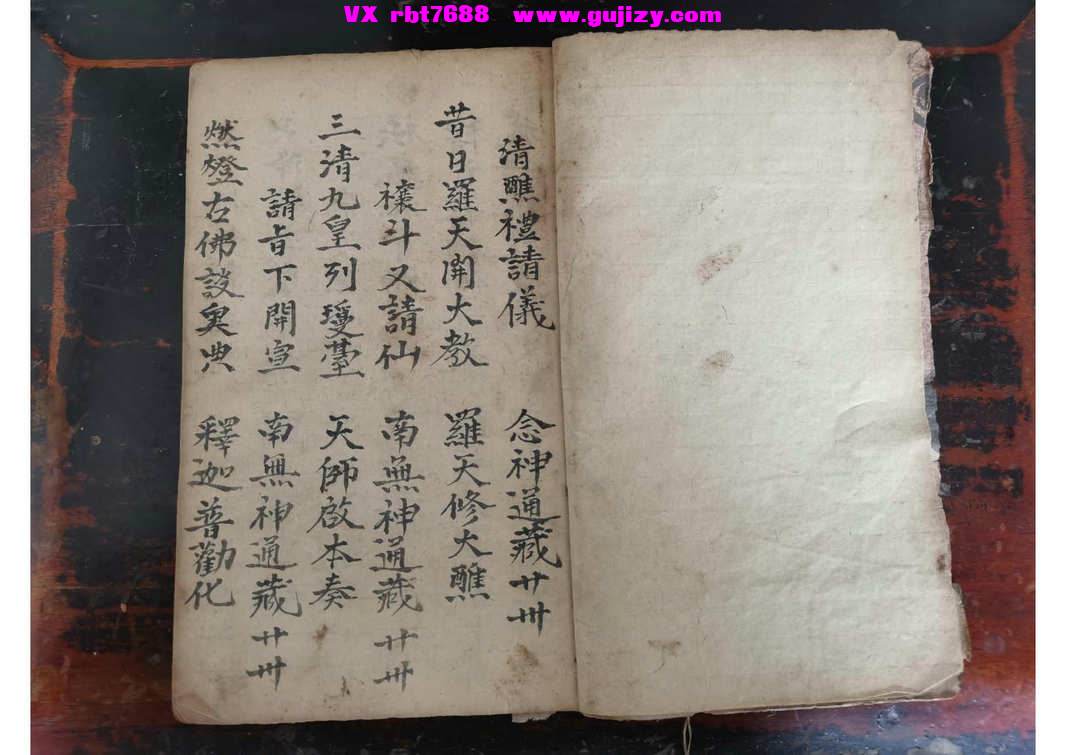 VX rbt7688 www.gujizy.com
清醮禮請儀 念神通藏廾卅
昔日羅天開大教 羅天修大醮
禳斗又請仙 南無神通藏廾卅
三清九皇列瓊臺 天師啟本奏
請旨下開宣 南無神通藏廾卅
燃燈古佛談奥典 釋迦普勸化